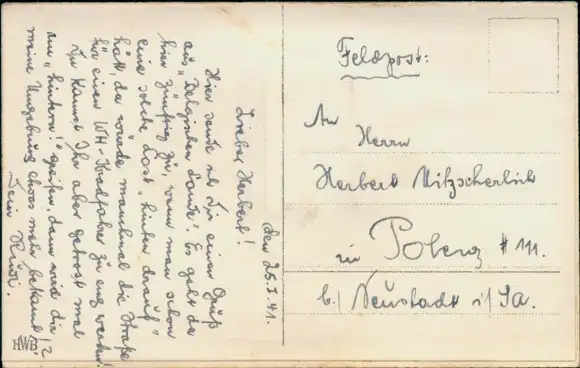 den 25.I.41.
Lieber Herbert!
Hier sende ich Dir einen Gruß
aus "Belgischen Lande". Es geht da
hier zünftig zu, wenn man schon
eine solche Last "hinten drauf"
hat, da würde manchmal die Straße
für einen WH-Kradfahrer zu eng werden!
Du kannst Ihr aber getrost mal
am "hintern" greifen, dann wird dir
meine Umgebung etwas mehr bekannt!?
Dein Rudi.
HWB
Feldpost:
An
Herrn
Herbert Nitzscherlich
in Polenz # 111.
b./ Neustadt i/Sa.